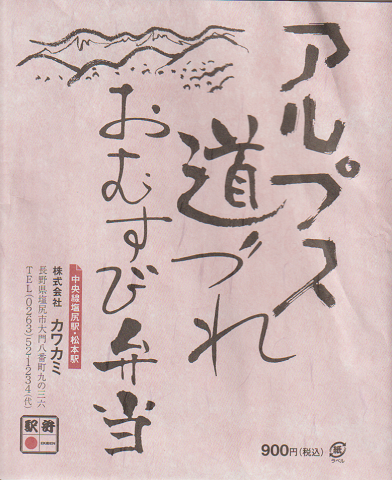 アルプス
道づれ
おむすび弁当
中央線塩尻駅・松本駅
株式会社 カワカミ
長野県塩尻市大門八番町九の三六
TEL(0263)521234(代)
駅弁
900円(税込)
紙
ラベル